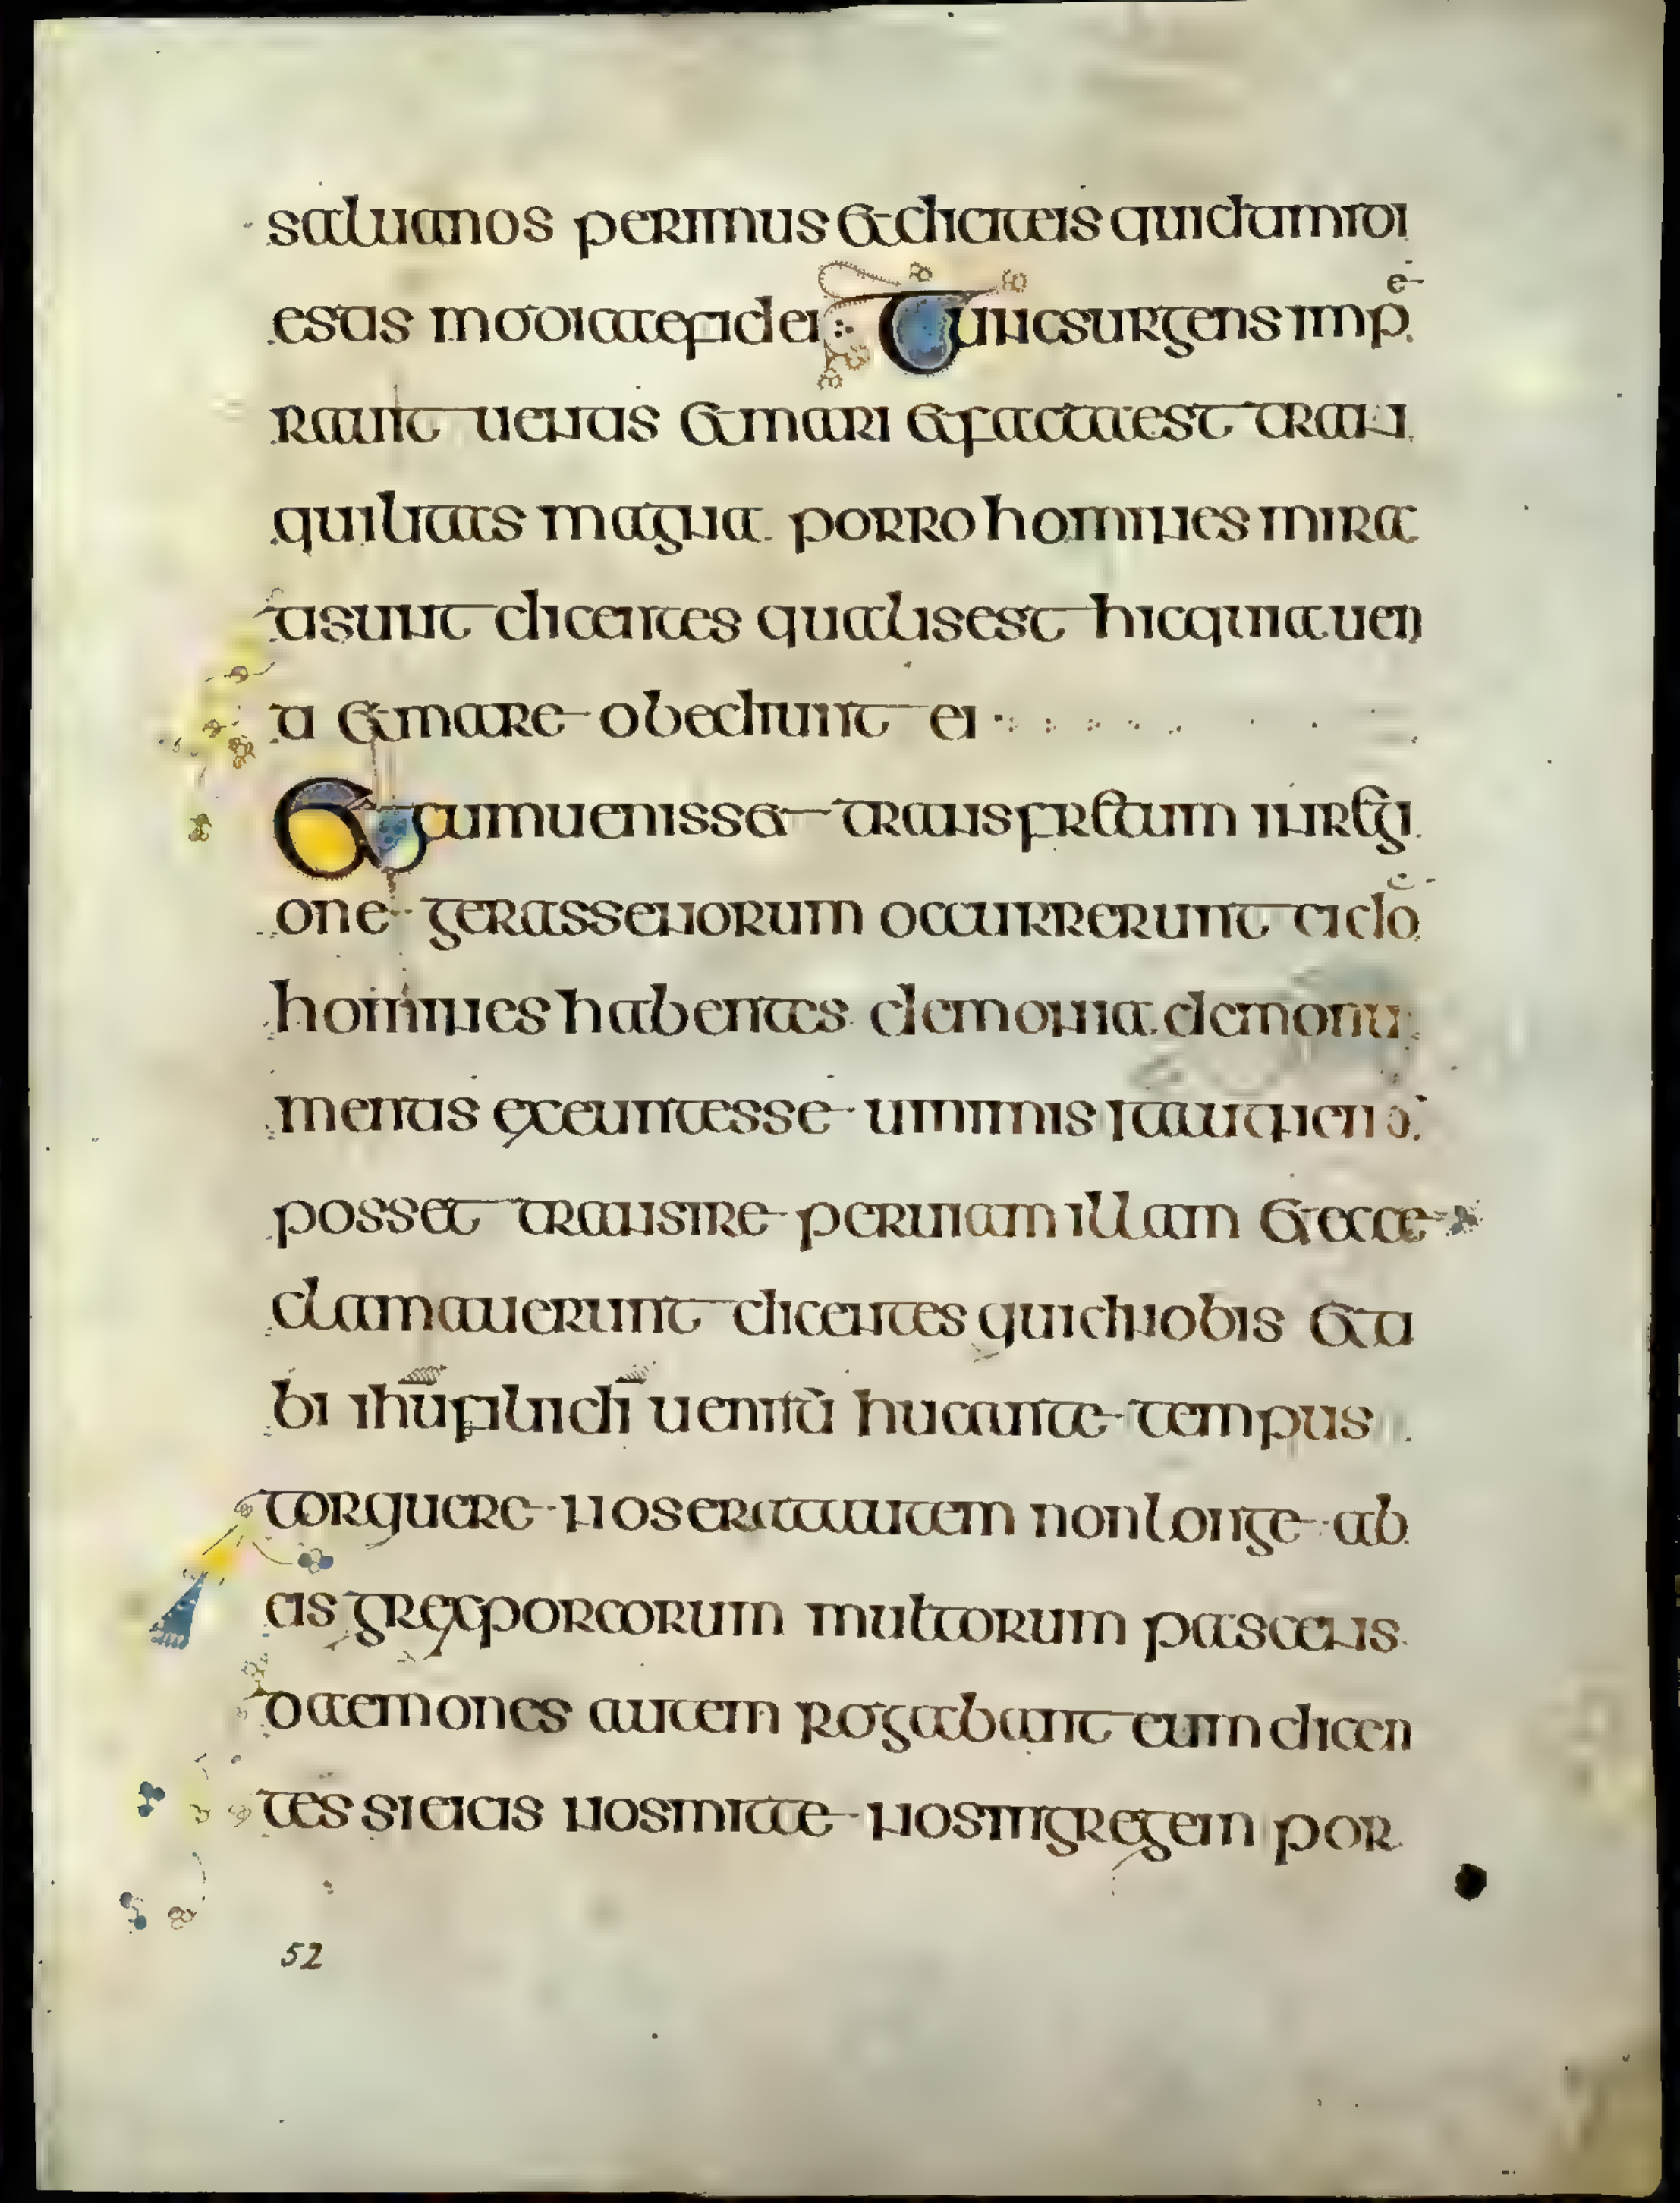 saluanos perimus et dicit eis quid timidi
estis modicae fidei Tunc surgens impe
rauit uentis et mari et facta est tran
quilitas magna porro homines mira
ti sunt dicentes qualis est hic quia uen
ti et mare obediunt ei
Et cum uenisset trans fretum in regi
one gerassenorum occurrerunt ei duo
homines habentes demonia de monu
mentis exeuntes seui nimis ita ut nemo
posset transire per uiam illam et ecce
clamauerunt dicentes quid nobis et ti
bi ihu fili di uenisti huc ante tempus
torquere nos erat autem non longe ab
eis grex porcorum multorum pascens
daemones autem rogabant eum dicen
tes si eicis nos mitte nos in gregem por
52